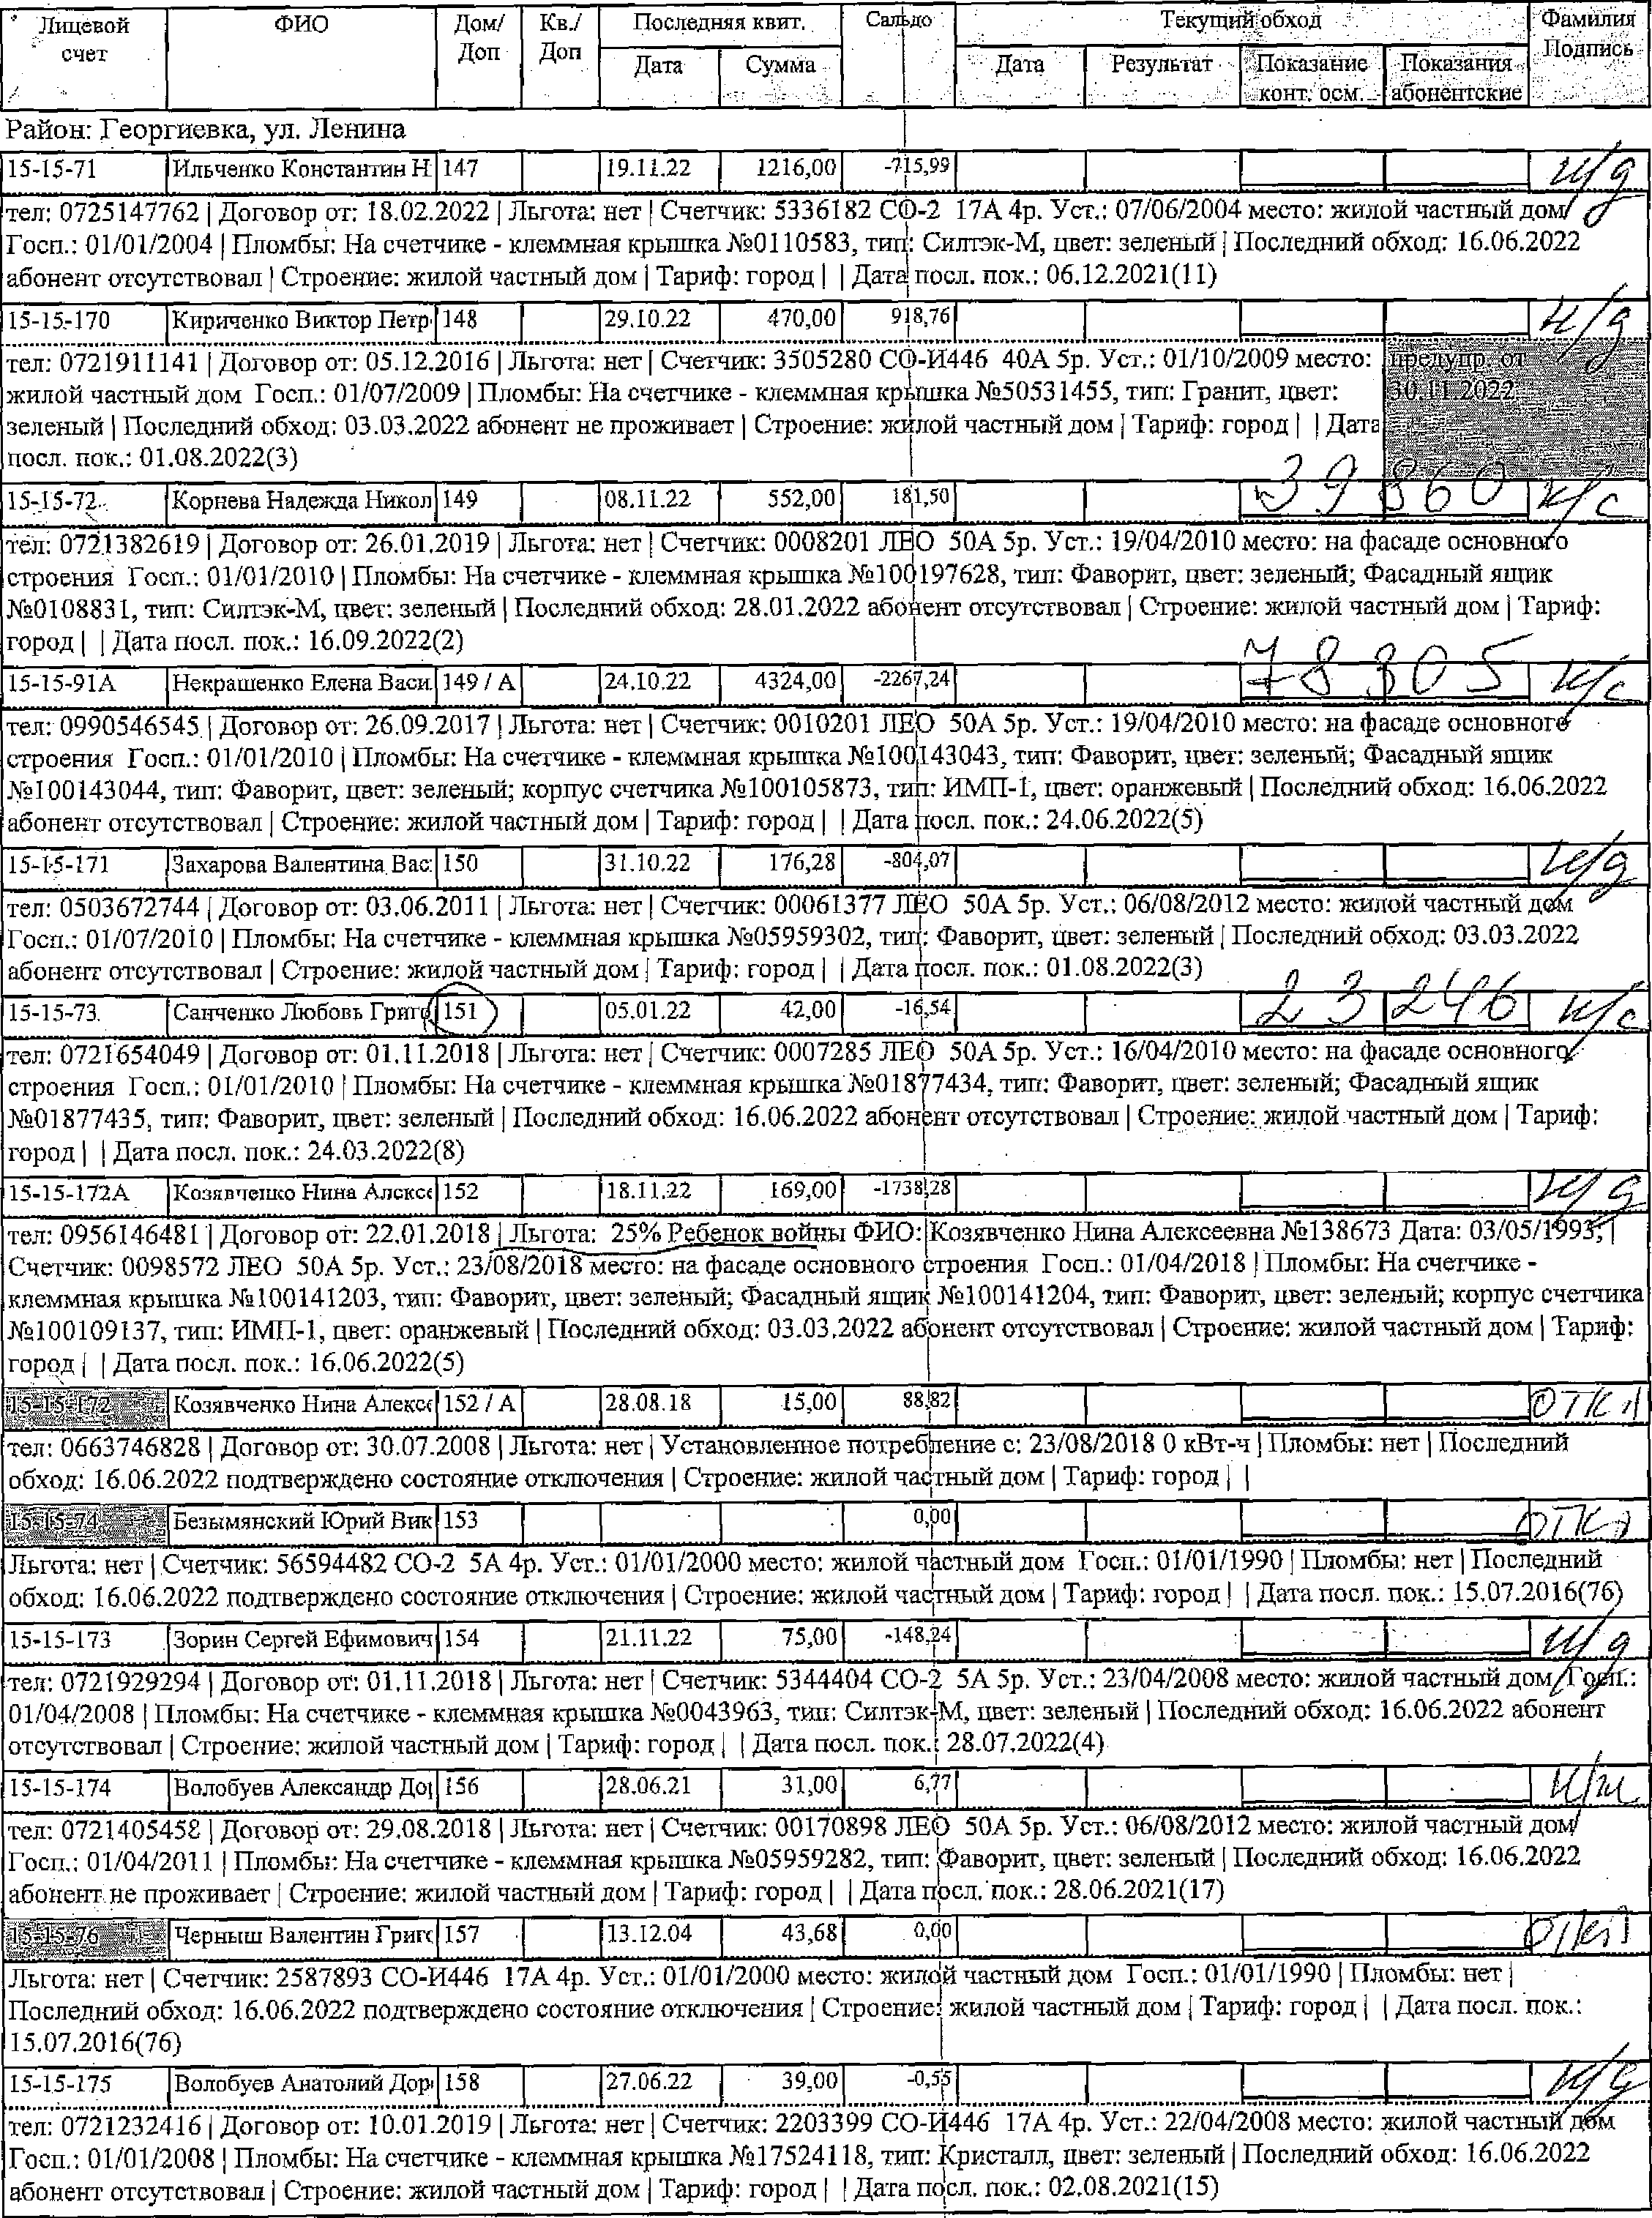 Лицевой счет | ФИО | Дом/Доп | Кв./Доп | Последняя квит. | Сальдо | Текущий обход | Фамилия Подпись
Дата | Сумма | Дата | Результат | Показание конт. осм. | Показания абонентские
Район: Георгиевка, ул. Ленина
15-15-71 | Ильченко Константин Н | 147 | 19.11.22 | 1216,00 | -715,99 | н/д
тел: 0725147762 | Договор от: 18.02.2022 | Льгота: нет | Счетчик: 5336182 СО-2 17А 4р. Уст.: 07/06/2004 место: жилой частный дом
Госп.: 01/01/2004 | Пломбы: На счетчике - клеммная крышка №0110583, тип: Силтэк-М, цвет: зеленый | Последний обход: 16.06.2022
абонент отсутствовал | Строение: жилой частный дом | Тариф: город | | Дата посл. пок.: 06.12.2021(11)
15-15-170 | Кириченко Виктор Петр | 148 | 29.10.22 | 470,00 | 918,76 | н/д
тел: 0721911141 | Договор от: 05.12.2016 | Льгота: нет | Счетчик: 3505280 СО-И446 40А 5р. Уст.: 01/10/2009 место: предупр. от
жилой частный дом Госп.: 01/07/2009 | Пломбы: На счетчике - клеммная крышка №50531455, тип: Гранит, цвет: 30.11.2022
зеленый | Последний обход: 03.03.2022 абонент не проживает | Строение: жилой частный дом | Тариф: город | | Дата
посл. пок.: 01.08.2022(3)
15-15-72 | Корнева Надежда Никол | 149 | 08.11.22 | 552,00 | 181,50 | 39 860 | н/с
тел: 0721382619 | Договор от: 26.01.2019 | Льгота: нет | Счетчик: 0008201 ЛЕО 50А 5р. Уст.: 19/04/2010 место: на фасаде основного
строения Госп.: 01/01/2010 | Пломбы: На счетчике - клеммная крышка №100197628, тип: Фаворит, цвет: зеленый; Фасадный ящик
№0108831, тип: Силтэк-М, цвет: зеленый | Последний обход: 28.01.2022 абонент отсутствовал | Строение: жилой частный дом | Тариф:
город | | Дата посл. пок.: 16.09.2022(2)
15-15-91А | Некрашенко Елена Васи | 149 / А | 24.10.22 | 4324,00 | -2267,24 | 78 805 | н/с
тел: 0990546545 | Договор от: 26.09.2017 | Льгота: нет | Счетчик: 0010201 ЛЕО 50А 5р. Уст.: 19/04/2010 место: на фасаде основного
строения Госп.: 01/01/2010 | Пломбы: На счетчике - клеммная крышка №100143043, тип: Фаворит, цвет: зеленый; Фасадный ящик
№100143044, тип: Фаворит, цвет: зеленый; корпус счетчика №100105873, тип: ИМП-1, цвет: оранжевый | Последний обход: 16.06.2022
абонент отсутствовал | Строение: жилой частный дом | Тариф: город | | Дата посл. пок.: 24.06.2022(5)
15-15-171 | Захарова Валентина Вас | 150 | 31.10.22 | 176,28 | -804,07 | н/д
тел: 0503672744 | Договор от: 03.06.2011 | Льгота: нет | Счетчик: 00061377 ЛЕО 50А 5р. Уст.: 06/08/2012 место: жилой частный дом
Госп.: 01/07/2010 | Пломбы: На счетчике - клеммная крышка №05959302, тип: Фаворит, цвет: зеленый | Последний обход: 03.03.2022
абонент отсутствовал | Строение: жилой частный дом | Тариф: город | | Дата посл. пок.: 01.08.2022(3)
15-15-73 | Санченко Любовь Григо | 151 | 05.01.22 | 42,00 | -16,54 | 23 246 | н/с
тел: 0721654049 | Договор от: 01.11.2018 | Льгота: нет | Счетчик: 0007285 ЛЕО 50А 5р. Уст.: 16/04/2010 место: на фасаде основного
строения Госп.: 01/01/2010 | Пломбы: На счетчике - клеммная крышка №01877434, тип: Фаворит, цвет: зеленый; Фасадный ящик
№01877435, тип: Фаворит, цвет: зеленый | Последний обход: 16.06.2022 абонент отсутствовал | Строение: жилой частный дом | Тариф:
город | | Дата посл. пок.: 24.03.2022(8)
15-15-172А | Козявченко Нина Алексе | 152 | 18.11.22 | 169,00 | -1738,28 | н/д
тел: 0956146481 | Договор от: 22.01.2018 | Льгота: 25% Ребенок войны ФИО: Козявченко Нина Алексеевна №138673 Дата: 03/05/1993, |
Счетчик: 0098572 ЛЕО 50А 5р. Уст.: 23/08/2018 место: на фасаде основного строения Госп.: 01/04/2018 | Пломбы: На счетчике -
клеммная крышка №100141203, тип: Фаворит, цвет: зеленый; Фасадный ящик №100141204, тип: Фаворит, цвет: зеленый; корпус счетчика
№100109137, тип: ИМП-1, цвет: оранжевый | Последний обход: 03.03.2022 абонент отсутствовал | Строение: жилой частный дом | Тариф:
город | | Дата посл. пок.: 16.06.2022(5)
15-15-172 | Козявченко Нина Алексе | 152 / А | 28.08.18 | 15,00 | 88,82 | откл
тел: 0663746828 | Договор от: 30.07.2008 | Льгота: нет | Установленное потребление с: 23/08/2018 0 кВт-ч | Пломбы: нет | Последний
обход: 16.06.2022 подтверждено состояние отключения | Строение: жилой частный дом | Тариф: город | |
15-15-74 | Безымянский Юрий Вик | 153 | 0,00 | откл
Льгота: нет | Счетчик: 56594482 СО-2 5А 4р. Уст.: 01/01/2000 место: жилой частный дом Госп.: 01/01/1990 | Пломбы: нет | Последний
обход: 16.06.2022 подтверждено состояние отключения | Строение: жилой частный дом | Тариф: город | | Дата посл. пок.: 15.07.2016(76)
15-15-173 | Зорин Сергей Ефимович | 154 | 21.11.22 | 75,00 | -148,24 | н/д
тел: 0721929294 | Договор от: 01.11.2018 | Льгота: нет | Счетчик: 5344404 СО-2 5А 5р. Уст.: 23/04/2008 место: жилой частный дом Госп.:
01/04/2008 | Пломбы: На счетчике - клеммная крышка №0043963, тип: Силтэк-М, цвет: зеленый | Последний обход: 16.06.2022 абонент
отсутствовал | Строение: жилой частный дом | Тариф: город | | Дата посл. пок.: 28.07.2022(4)
15-15-174 | Волобуев Александр До | 156 | 28.06.21 | 31,00 | 6,77 | н/ж
тел: 0721405458 | Договор от: 29.08.2018 | Льгота: нет | Счетчик: 00170898 ЛЕО 50А 5р. Уст.: 06/08/2012 место: жилой частный дом
Госп.: 01/04/2011 | Пломбы: На счетчике - клеммная крышка №05959282, тип: Фаворит, цвет: зеленый | Последний обход: 16.06.2022
абонент не проживает | Строение: жилой частный дом | Тариф: город | | Дата посл. пок.: 28.06.2021(17)
15-15-76 | Черныш Валентин Григо | 157 | 13.12.04 | 43,68 | 0,00 | откл
Льгота: нет | Счетчик: 2587893 СО-И446 17А 4р. Уст.: 01/01/2000 место: жилой частный дом Госп.: 01/01/1990 | Пломбы: нет |
Последний обход: 16.06.2022 подтверждено состояние отключения | Строение: жилой частный дом | Тариф: город | | Дата посл. пок.:
15.07.2016(76)
15-15-175 | Волобуев Анатолий Дор | 158 | 27.06.22 | 39,00 | -0,55 | н/д
тел: 0721232416 | Договор от: 10.01.2019 | Льгота: нет | Счетчик: 2203399 СО-И446 17А 4р. Уст.: 22/04/2008 место: жилой частный дом
Госп.: 01/01/2008 | Пломбы: На счетчике - клеммная крышка №17524118, тип: Кристалл, цвет: зеленый | Последний обход: 16.06.2022
абонент отсутствовал | Строение: жилой частный дом | Тариф: город | | Дата посл. пок.: 02.08.2021(15)